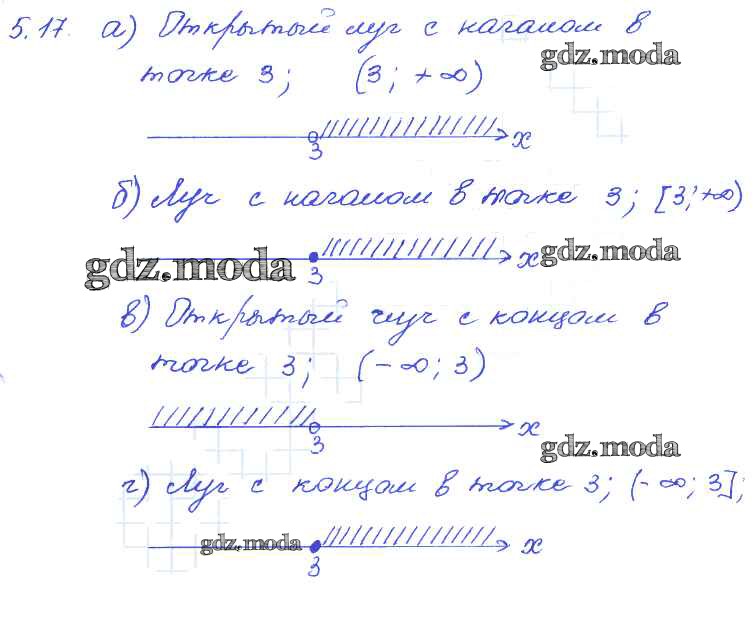 5.17. а) Открытый луч с началом в
gdz.moda
точке 3; (3; +∞)
x
3
б) Луч с началом в точке 3; [3; +∞)
gdz.moda
x gdz.moda
3
в) Открытый луч с концом в
точке 3; (-∞; 3)
x
3
gdz.moda
г) Луч с концом в точке 3; (-∞; 3];
gdz.moda
x
3